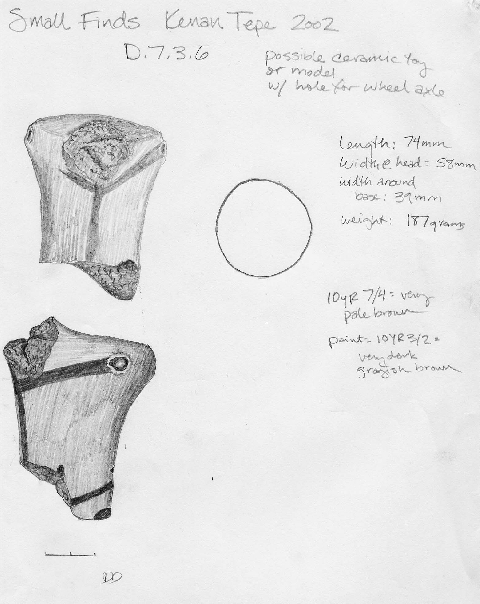 Small Finds Kenan Tepe 2002
D.7.3.6
possible ceramic toy
or model
w/ hole for wheel axle
length: 74mm
width@head= 58mm
width around
base: 39mm
weight: 187grams
10YR 7/4= very
pale brown
paint= 10YR3/2=
very dark
grayish brown